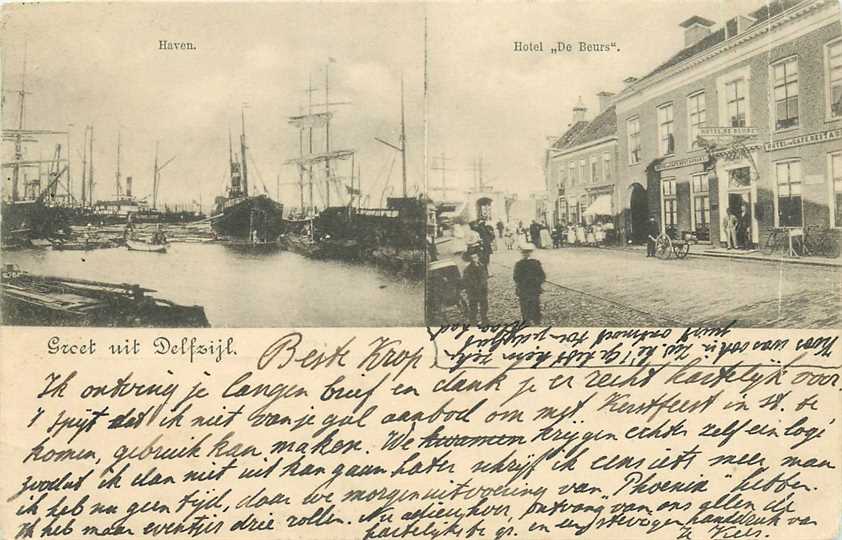 Haven.
Hotel „De Beurs“.
HOTEL DE BEURS
HOTEL CAFÉ RESTAU
Groet uit Delfzijl.
Beste Krop
Ik ontving je langen brief en dank je er recht hartelijk voor.
't spijt dat ik niet van je gul aanbod om met Kerstfeest in st. te
komen, gebruik kan maken. We kwamen krijgen echter zelf een logé
zoodat ik dan niet uit kan gaan. Later schrijf ik eens iets meer, maar
ik heb nu geen tijd, daar we morgen uitvoering van "Phoenix" hebben.
Ik heb maar eventjes drie rollen. Nu adieu, hoor, ontvang van ons allen de
hartelijkste gr. en een stevigen handdruk van